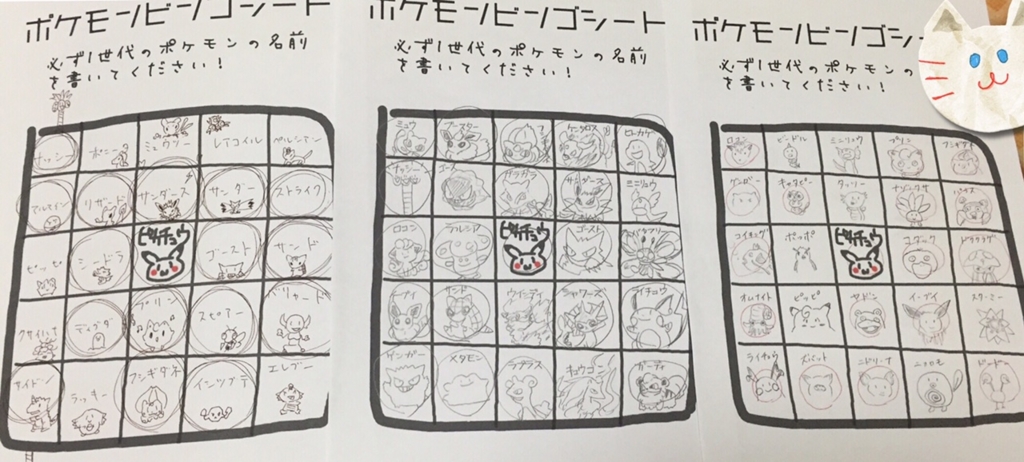 ポケモンビンゴシート
必ず1世代のポケモンの名前
を書いてください!
ナッシー ポニータ ミュウツー レアコイル ペルシアン
マルマイン リザード サンダース サンダー ストライク
ピッピ シードラ ピカチュウ ゴースト サンド
クサイハナ ディグダ プリン スピアー バリヤード
サイドン ラッキー フシギダネ イシツブテ エレブー
ポケモンビンゴシート
必ず1世代のポケモンの名前
を書いてください!
ミュウ ブースター ケンタロス ヒトカゲ
ナッシー カラカラ サンダース ミニリュウ
ロコン ラフレシア ピカチュウ ゴースト バタフリー
イーブイ サンド ウインディ シャワーズ ライチュウ
ゲンガー メタモン ラプラス キュウコン ガーディ
ポケモンビンゴシー
必ず1世代のポケモンの
を書いてください!
ロコン ビードル ミニリュウ プリン フシギダネ
キャタピー ナゾノクサ パラス
コイキング ポッポ ピカチュウ コダック
オムナイト ピッピ ヤドン イーブイ スターミー
ライチュウ ズバット ニドリーナ ニョロモ ドードー